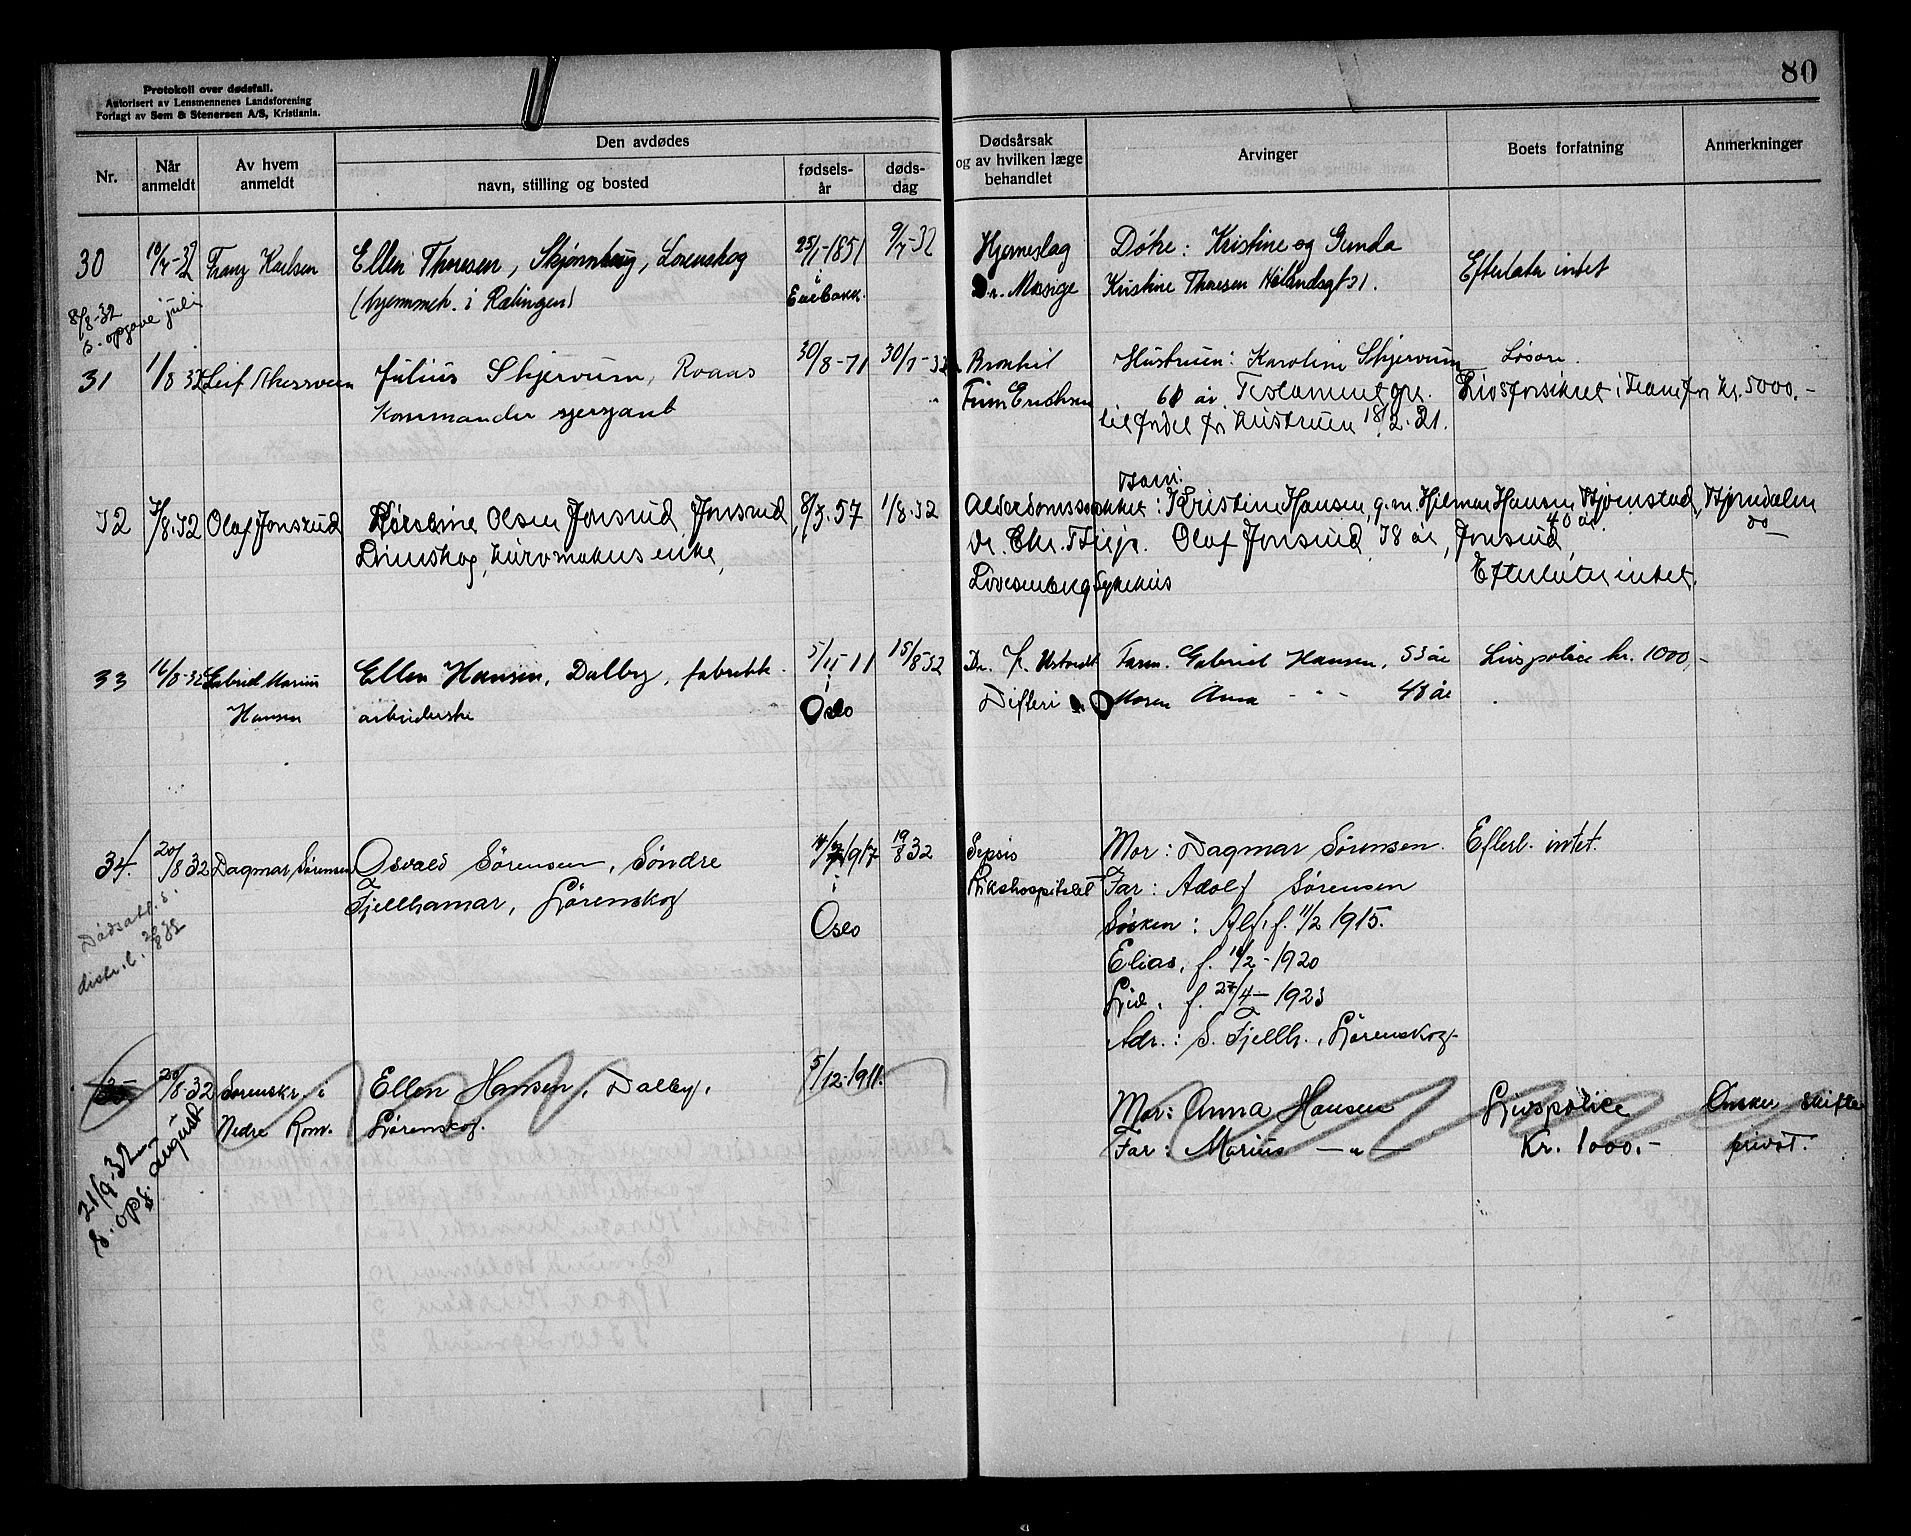 80
Protokoll over dødsfall.
Autorisert av Lensmennenes Landsforening
Forlagt av Sem & Stenersen A/S, Kristiania.
Nr.
Når anmeldt
Av hvem anmeldt
Den avdødes
navn, stilling og bosted
fødsels-år
døds-dag
Dødsårsak og av hvilken læge behandlet
Arvinger
Boets forfatning
Anmerkninger
30 10/7-32 Franz Karlsen Ellen Thoresen, Skjønnhaug, Lørenskog 25/1-1851 9/7-32 Hjerneslag Døtre: Kristine og Gunda
(hjemmeh. i Rælingen) i Enebakk. Dr. Mosige Kristine Thoresen Hølandsgt 21. Efterlater intet
8/8-32
s. opgave juli
31 1/8 32 Leif Julius Skjervum, Roaas 30/8-71 30/7-32 Bronkit Hustruen: Karoline Skjervum Løsøre.
Kommander sersjant Finn Erichsen 61 år Testament opr. Livsforsikret i for kr. 5000.-
til fordel for Hustruen 18/2.21.
Barn:
32 3/8.32 Olaf Jonsrud Olsen Jonsrud Jonsrud, 8/3.57 1/8.32 Alderdomssvakhet: Kristine Hansen, g.m. Hilmar Hansen, Bjørnstad, Bjørndalen
40 år.
Lørenskog, enke, Dr. Chr. Olaf Jonsrud, 38 år, Jonsrud, do
Lovisenberg Sykehus Efterlater intet.
33 16/8-32 Gabriel Marius Ellen Hansen, Dalby, fabrikk- 5/11-11 15/8-32 Dr. Farm. Gabriel Hansen, 53 år Livspolice kr. 1000,-
Hansen arbeiderske i Oslo Difteri Moren Anna - " - 48 år
34. 20/8 32 Dagmar Sørensen Osvald Sørensen, Søndre 1917 19/8 32 Sepsis Mor: Dagmar Sørensen. Efterl. intet.
Fjellhamar, Lørenskog i Oslo Rikshospitalet Far: Adolf Sørensen
Dødsatt. s. Søsken: Alf, f. 11/2 1915.
distr.l. 22/8 32 Elias, f. 16/2-1920
f. 27/4-1923
Adr.: S. Fjellh., Lørenskog.
35 20/8.32 Sorenskr. i Ellen Hansen, Dalby, 5/12-1911. Mor: Anna Hansen Livspolice Ønsker skifte
Nedre Rom. Lørenskog. Far: Marius —"— Kr. 1000.- privat.
21/9.32
s. opg. august